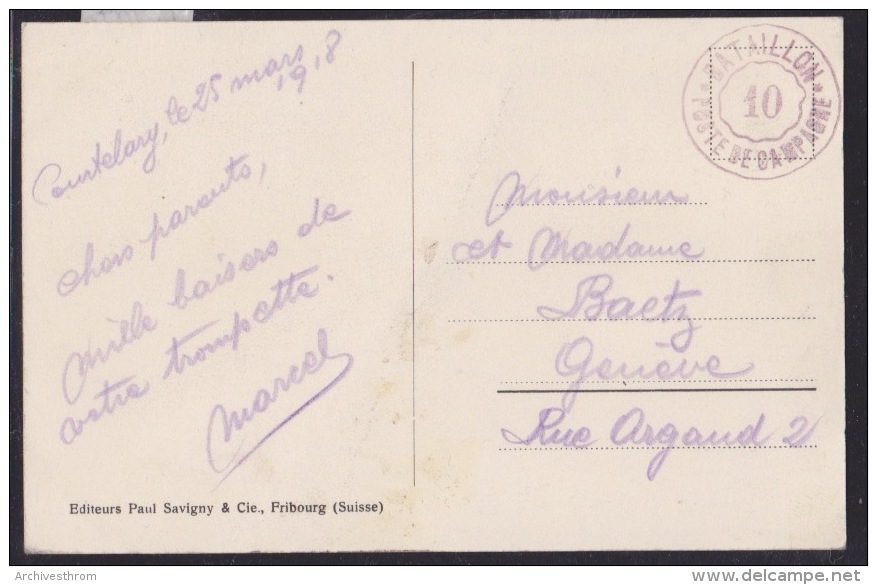 Courtelary, le 25 mars
1918
chers parents,
Mille baisers de
votre trompette.
Marcel
Editeurs Paul Savigny & Cie., Fribourg (Suisse)
BATAILLON
10
POSTE DE CAMPAGNE
Monsieur
et Madame
Baetz
Genève
Rue Argand 2
Archivesthrom
delcampe.net